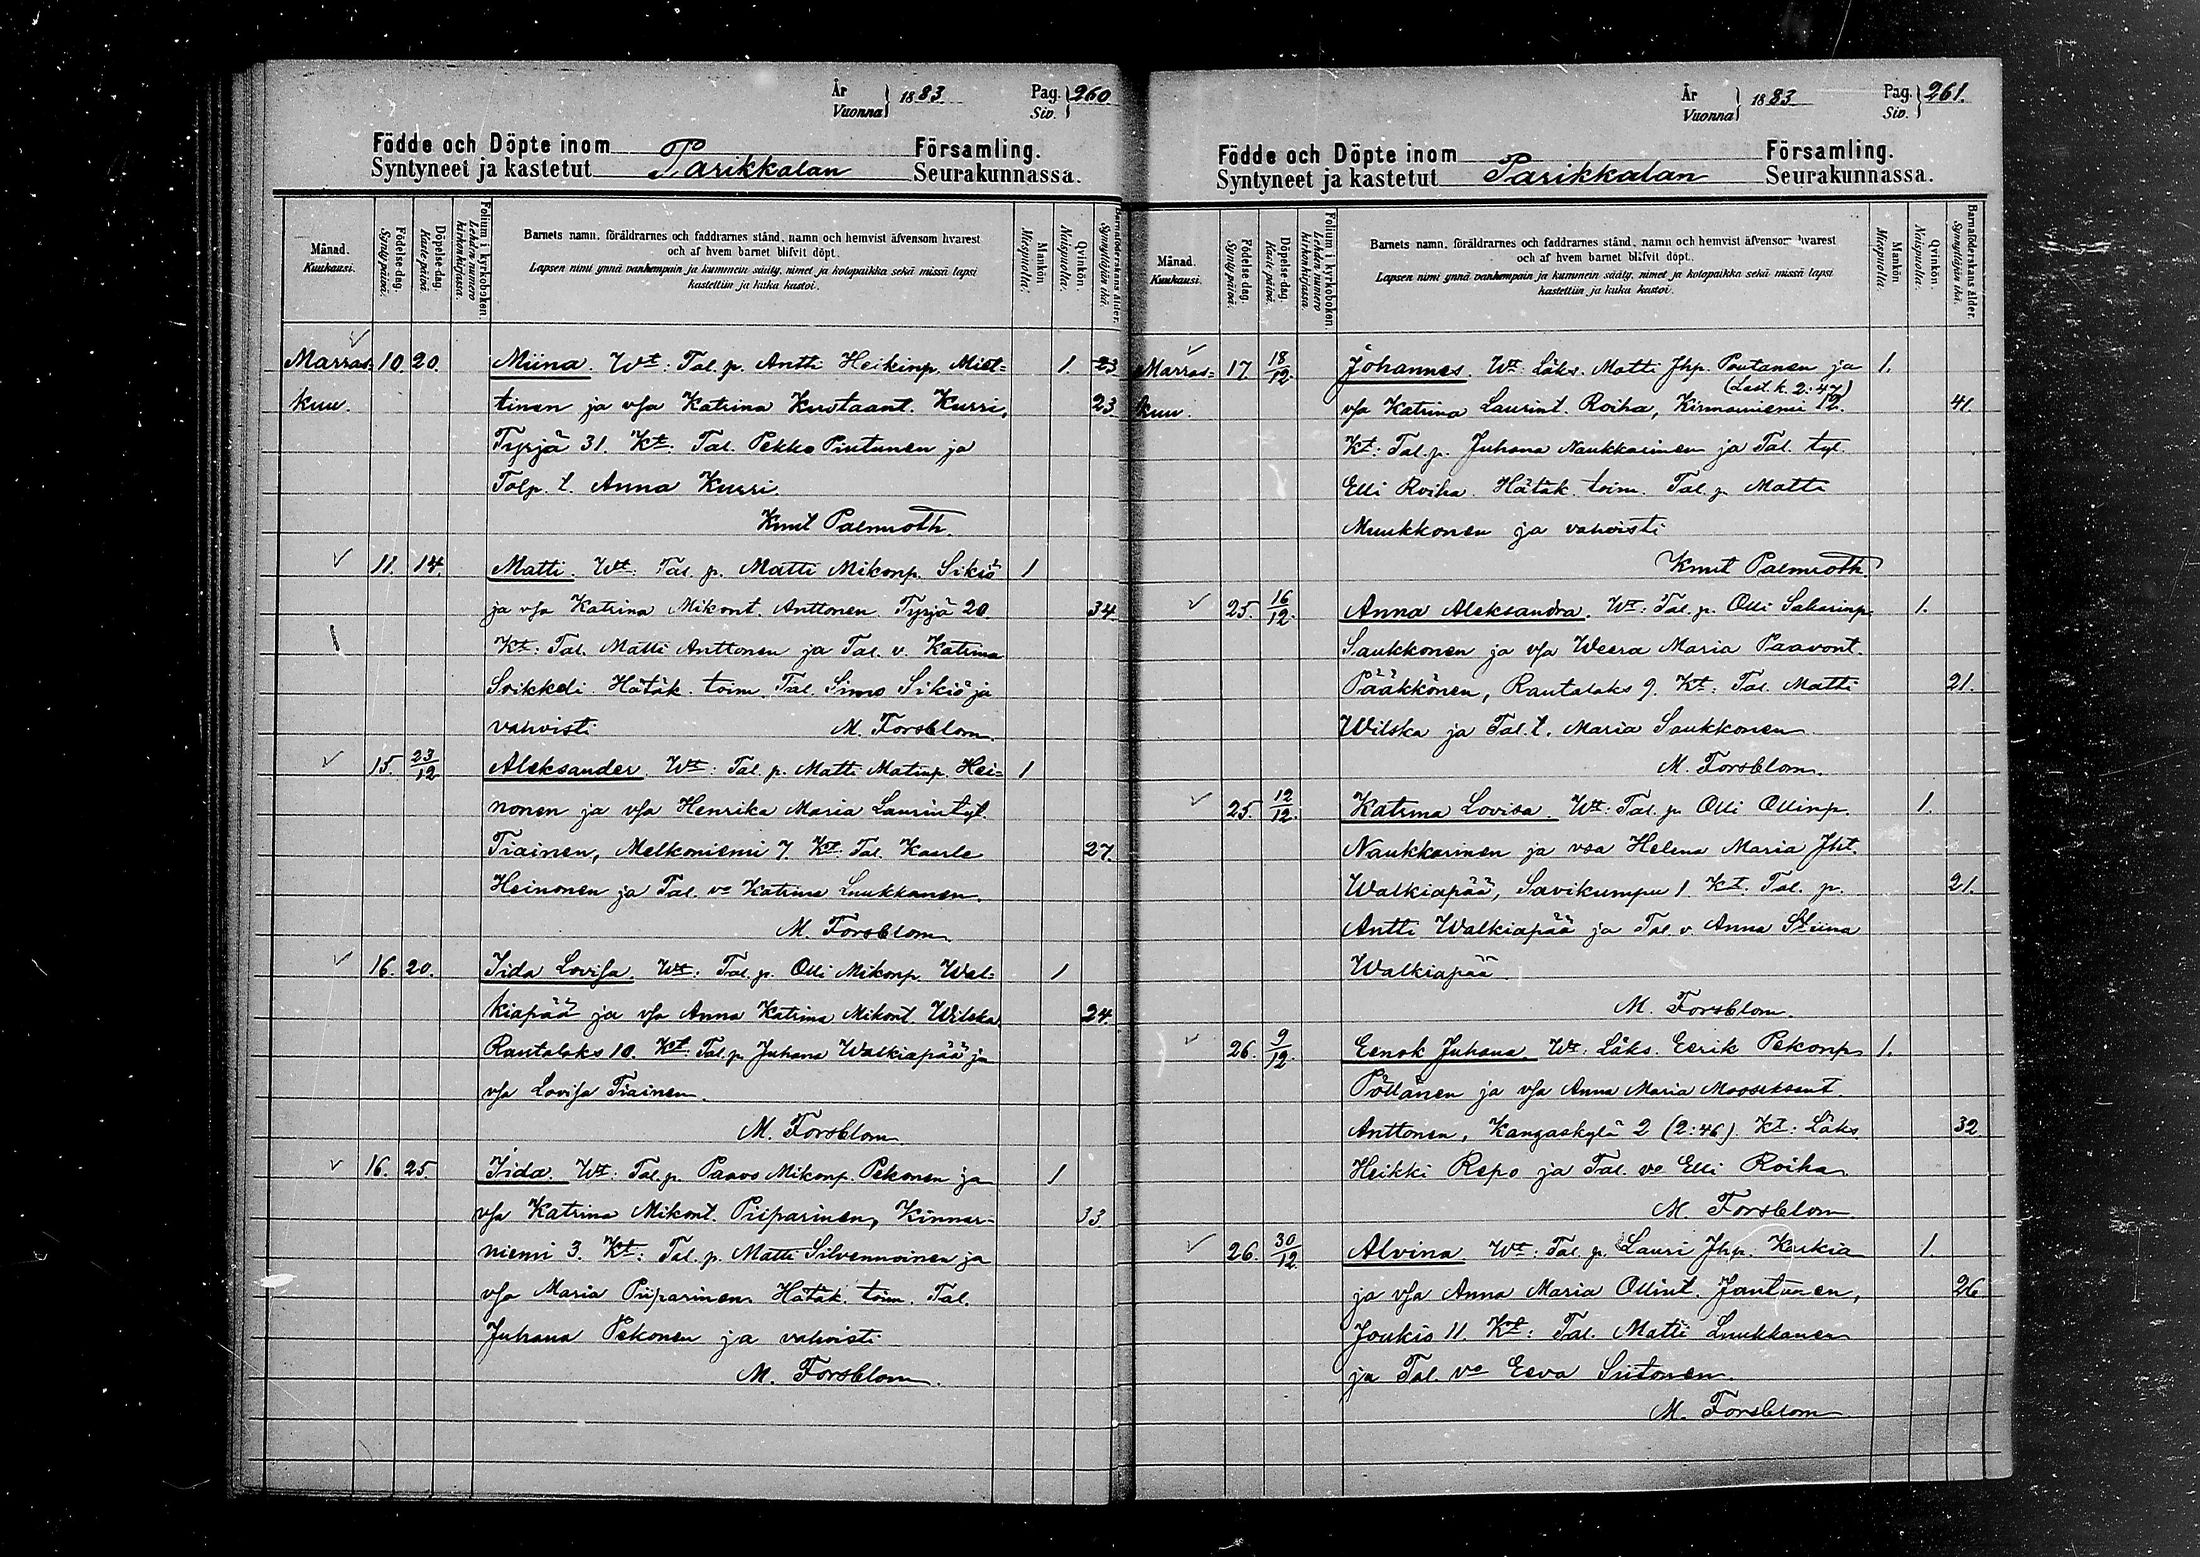 År Vuonna 1883. Pag. Siv. 260
Födde och Döpte inom Församling.
Syntyneet ja kastetut Parikkalan Seurakunnassa.
Månad. Kuukausi.
Födelse-dag. Syntypäivä.
Döpelse-dag. Kaste-päivä.
Folium i kyrkoboken. Lehden numero kirkonkirjassa.
Barnets namn, föräldrarnes och faddrarnes stånd, namn och hemvist äfvensom hvarest
och af hvem barnet blifvit döpt.
Lapsen nimi ynnä vanhempain ja kummein sääty, nimet ja kotopaikka sekä missä lapsi
kastettiin ja kuka kastoi.
Mankön Miespuolia.
Qvinkön. Naispuolia.
Barnaföderskans ålder. Synnyttäjän ikä.
Marras= 10. 20. Miina. Wt: Tal. p. Antti Heikinp. Miet= 1. 23
kuu. tinen ja v:sa Katrina Kustaant. Kurri, 23.
Tyrjä 31. Kt: Tal. Pekka Piutunen ja
Talp. t. Anna Kurri.
Knut Palmroth.
11. 14. Matti. Wt: Tal. p. Matti Mikonp. Sikiö 1
ja v:sa Katrina Mikont. Anttonen. Tyrjä 20. 34.
Kt: Tal. Matti Anttonen ja Tal. v. Katrina
Soikkeli. Hätäk. toim. Tal. Simo Sikiö ja
vahvisti M. Forsblom.
15. 23/12 Aleksander. Wt: Tal. p. Matti Matinp. Hei= 1
nonen ja v:sa Henrika Maria Laurintyt.
Tiainen, Melkoniemi 7. Kt: Tal. Kaarle 27.
Heinonen ja Tal. vo Katrina Luukkanen.
M. Forsblom.
16. 20. Iida Lovisa. Wt: Tal. p. Olli Mikonp. Wal= 1
kiapää ja v:sa Anna Katrina Mikont. Wilska. 24.
Rautalaks 10. Kt: Tal. p. Juhana Walkiapää ja
v:sa Lovisa Tiainen.
M. Forsblom
16. 25. Iida. Wt: Tal. p. Paavo Mikonp. Pekonen ja 1
v:sa Katrina Mikont. Piiparinen, Kinnar= 33
niemi 3. Kt: Tal. p. Matti Silvennoinen ja
v:sa Maria Piiparinen. Hätäk. toim. Tal.
Juhana Pekonen ja vahvisti
M. Forsblom.
År Vuonna 1883 Pag. Siv. 261.
Födde och Döpte inom Församling.
Syntyneet ja kastetut Parikkalan Seurakunnassa.
Månad. Kuukausi.
Födelse-dag. Syntypäivä.
Döpelse-dag. Kaste-päivä.
Folium i kyrkoboken. Lehden numero kirkonkirjassa.
Barnets namn, föräldrarnes och faddrarnes stånd, namn och hemvist äfvensom hvarest
och af hvem barnet blifvit döpt.
Lapsen nimi ynnä vanhempain ja kummein sääty, nimet ja kotopaikka sekä missä lapsi
kastettiin ja kuka kastoi.
Mankön Miespuolia.
Qvinkön. Naispuolia.
Barnaföderskans ålder. Synnyttäjän ikä.
Marras= 17. 18/12. Johannes. Wt: Läks. Matti Jhp. Poutanen ja 1.
(Last. k. 2:47)
kuu. v:sa Katrina Laurint. Roiha, Kinnarniemi 12. 41.
Kt: Tal. p. Juhana Naukkarinen ja Tal. tyt.
Elli Roiha. Hätäk. toim. Tal. p. Matti
Muukkonen ja vahvisti
Knut Palmroth.
25. 16/12. Anna Aleksandra. Wt: Tal. p. Olli Sakarinp. 1.
Saukkonen ja v:sa Weera Maria Paavont.
Pääkkönen, Rautalaks 9. Kt: Tal. Matti 21.
Wilska ja Tal. t. Maria Saukkonen
M. Forsblom.
25. 12/12. Katrina Lovisa. Wt: Tal. p. Olli Ollinp. 1.
Naukkarinen ja vsa Helena Maria Jht.
Walkiapää, Savikumpu 1. Kt. Tal. p. 21.
Antti Walkiapää ja Tal. v. Anna Stiina
Walkiapää
M. Forsblom.
26. 9/12. Eenok Juhana. Wt: Läks. Eerik Pekonp. 1.
Pöllänen ja v:sa Anna Maria Mooseksent.
Anttonen, Kangaskylä 2 (2:46). Kt: Läks 32.
Heikki Repo ja Tal. vo Elli Roiha.
M. Forsblom
26. 30/12. Alvina. Wt: Tal. p. Lauri Jhp. Karkia 1.
ja v:sa Anna Maria Ollint. Jantunen, 26
Joukio 11. Kt: Tal. Matti Luukkanen
ja Tal. vo Eeva Siitonen.
M. Forsblom